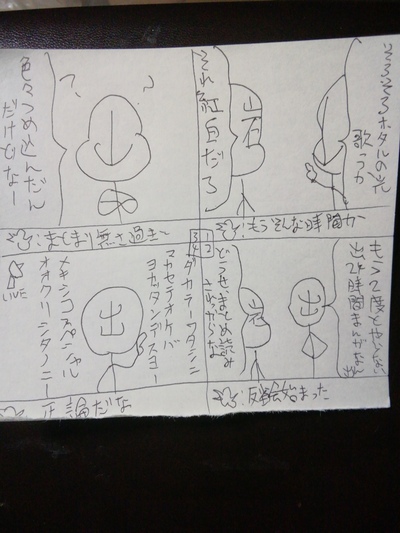 そろそろホタルの光
歌うか
岩
それ紅白だろ
:もうそんな時間か
1
2
3
4
もう2度とやらない
出
岩
どうせ、まとめ読み
されっからな
:反省会始まった
色々つめ込んだん
だけどなー
? ?
:まとまり無さ過ぎ〜
ダカラーワタシニ
マカセテオケバ
ヨカッタンデスヨー
出
メキシコスペシャル
オオクリシタノニー
LIVE
正論だな